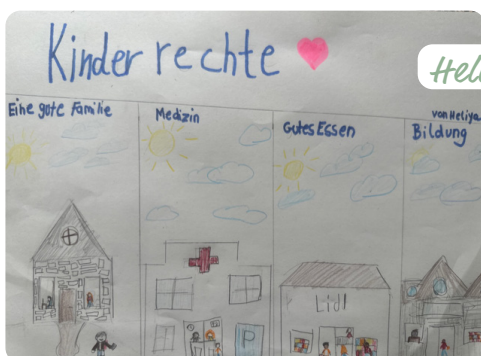 Kinderrechte
Eine gute Familie
Medizin
Gutes Essen
von Heliya
Bildung
Lidl
P